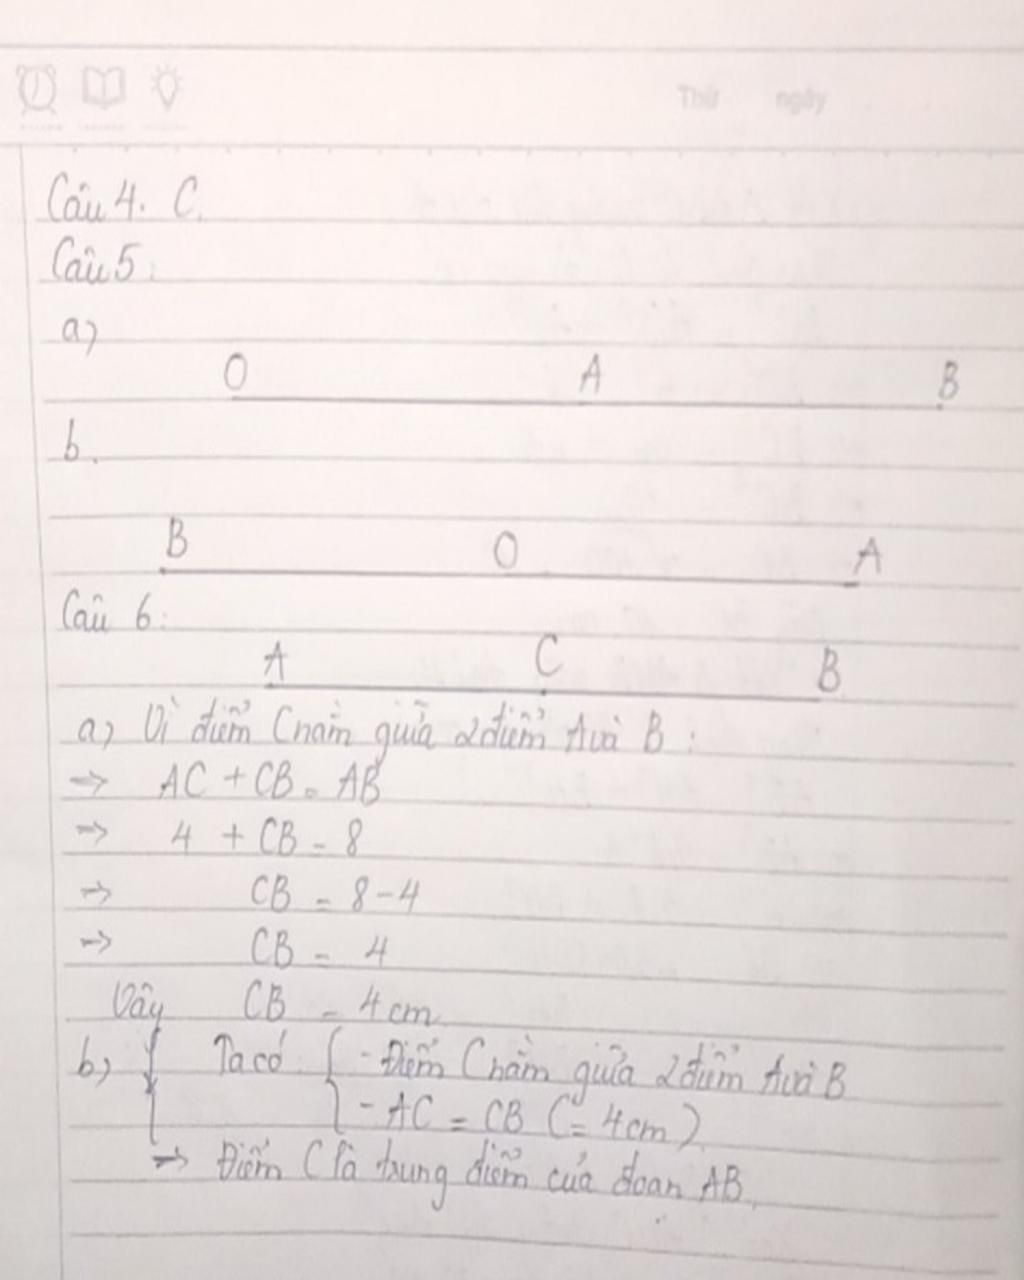 Thứ ngày
Câu 4. C.
Câu 5:
a)
O A B
b.
B O A
Câu 6:
A C B
a) Vì điểm C nằm giữa 2 điểm A và B:
=> AC + CB = AB
=> 4 + CB = 8
=> CB = 8 - 4
=> CB = 4
Vậy CB = 4cm
b) Ta có: { - Điểm C nằm giữa 2 điểm A và B
- AC = CB (= 4cm)
=> Điểm C là trung điểm của đoạn AB.